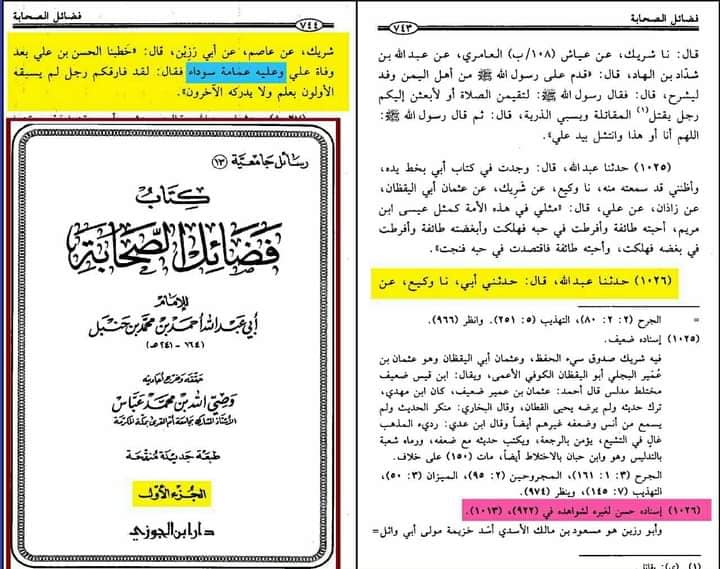 فضائل الصحابة
٧٤٣
قال: نا شريك، عن عياش (١٠٨/ب) العامري، عن عبدالله بن
شدّاد بن الهاد، قال: «قدم على رسول الله ﷺ من أهل اليمن وفد
ليشرح، قال: فقال رسول الله ﷺ: لتقيمن الصلاة أو لأبعثن إليكم
رجل يقتل(١) المقاتلة ويسبي الذرية، قال: ثم قال رسول الله ﷺ:
اللهم أنا أو هذا وانتشل بيد علي».
(١٠٢٥) حدثنا عبدالله، قال: وجدت في كتاب أبي بخط يده،
وأظنني قد سمعته منه، نا وكيع، عن شريك، عن عثمان أبي اليقظان،
عن زاذان، عن علي، قال: «مثلي في هذه الأمة كمثل عيسى ابن
مريم، أحبته طائفة وأفرطت في حبه فهلكت وأبغضته طائفة وأفرطت
في بغضه فهلكت، وأحبته طائفة فاقتصدت في حبه فنجت».
(١٠٢٦) حدثنا عبدالله، قال: حدثني أبي، نا وكيع، عن
= الجرح (٢: ٢: ٨٠)، التهذيب (٥: ٢٥١). وانظر (٩٦٦).
(١٠٢٥) إسناده ضعيف.
فيه شريك صدوق سيء الحفظ، وعثمان أبي اليقظان وهو عثمان بن
عُمير البجلي أبو اليقظان الكوفي الأعمى، ويقال: ابن قيس ضعيف
مختلط مدلس قال أحمد: عثمان بن عمير ضعيف، كان ابن مهدي،
ترك حديثه ولم يرضه يحيى القطان، وقال البخاري: منكر الحديث ولم
يسمع من أنس وضعفه غيرهم أيضاً وقال ابن عدي: رديء المذهب
غالٍ في التشيع، يؤمن بالرجعة، ويكتب حديثه مع ضعفه، ورماه شعبة
بالتدليس وهو وابن حبان بالاختلاط أيضاً، مات (١٥٠) على خلاف.
الجرح (٣: ١: ١٦١)، المجروحين (٢: ٩٥)، الميزان (٣: ٥٠)،
التهذيب (٧: ١٤٥)، وينظر (٩٧٤).
(١٠٢٦) إسناده حسن لغيره لشواهده في (٩٢٢)، (١٠١٣).
وأبو رزين هو مسعود بن مالك الأسدي أسد خزيمة مولى أبي وائل=
فضائل الصحابة
٧٤٤
شريك، عن عاصم، عن أبي رَزِيْن، قال: «خطبنا الحسن بن علي بعد
وفاة علي وعليه عمامة سوداء فقال: لقد فارقكم رجل لم يسبقه
الأولون بعلم ولا يدركه الآخرون».
رسائل جامعية (١٣)
كتاب
فضائل الصحابة
للإمام
أبي عبد الله أحمد بن محمد بن حنبل
(١٦٤ - ٢٤١ هـ)
حققه وخرج أحاديثه
وصي الله بن محمد عباس
الأستاذ المشارك بجامعة أم القرى بمكة المكرمة
طبعة جديدة منقحة
الجزء الأول
دار ابن الجوزي